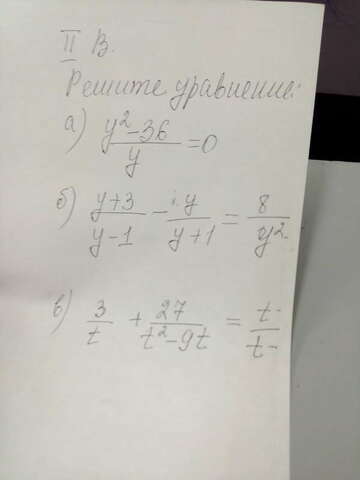 II В.
Решите уравнение:
а) y²-36/y = 0
б) y+3/y-1 - y/y+1 = 8/y²-
в) 3/t + 27/t²-9t = t-/t-